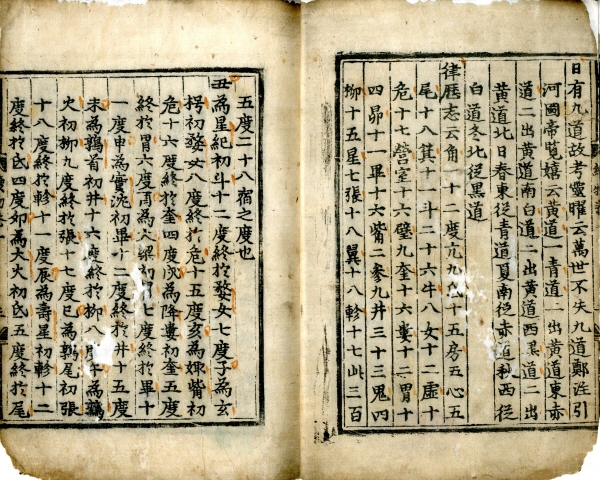 日有九道故考靈曜云萬世不失九道鄭注引
河圖帝覽嬉云黃道一青道二出黃道東赤
道二出黃道南白道二出黃道西黑道二出
黃道北日春東從青道夏南從赤道秋西從
白道冬北從黑道
律曆志云角十二度亢九氐十五房五心五
尾十八箕十一斗二十六牛八女十二虛十
危十七營室十六璧九奎十六婁十二胃十
四昴十一畢十六觜二參九井三十三鬼四
柳十五星七張十八翼十八軫十七此三百
五度二十八宿之度也
丑為星紀初斗十二度終於婺女七度子為玄
枵初婺女八度終於危十五度亥為娵觜初
危十六度終於奎四度戌為降婁初奎五度
終於胃六度酉為大梁初胃七度終於畢十
一度申為實沈初畢十二度終於井十五度
未為鶉首初井十六度終於柳八度午為鶉
火初柳九度終於張十度巳為鶉尾初張
十八度終於軫十一度辰為壽星初軫十二
度終於氐四度卯為大火初氐五度終於尾